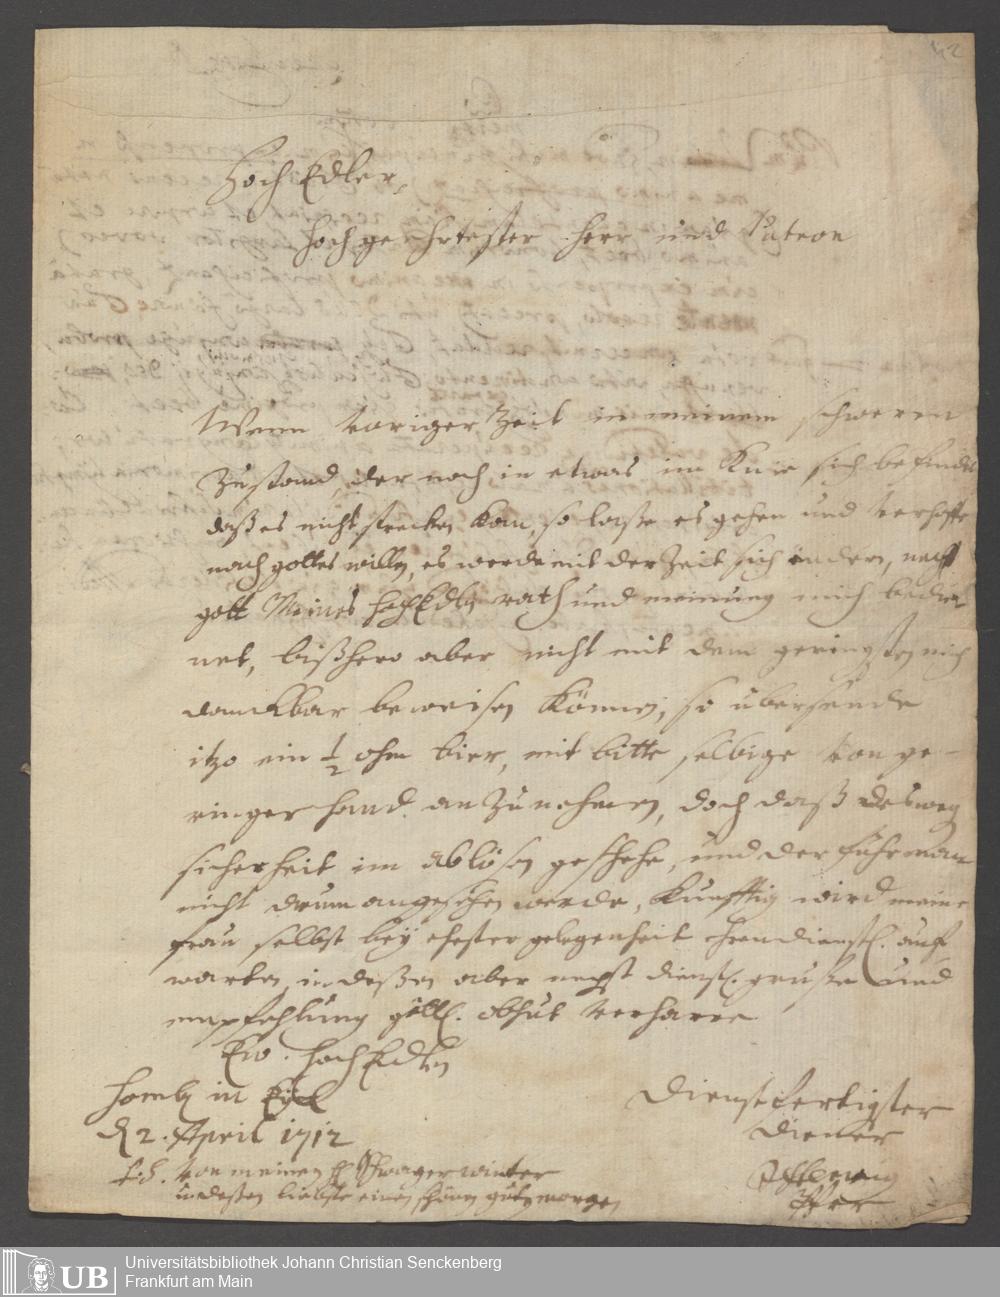 2
HochEdler,
Hochgeehrtester Herr und Patron
Wenn voriger Zeit in meinem schweren
Zustand, der noch in etwas im Knie sich befindet
daß es nicht strecken kan, so laße es gehen und verhoffe
nach gottes willen, es werde mit der Zeit sich endern, nechst
gott Meines HochEdlen rath und meinung mich bedie-
net, bißhero aber nicht mit dem geringsten mich
danckbar beweisen können, so übersende
itzo ein ½ ohm bier, mit bitte selbige von ge-
ringer hand anzunehmen, doch daß desweg
sicherheit im ablösen geschehe, und der fuhrman
nicht drum angesehen werde, Künfftig wird meine
frau selbst bey ehester gelegenheit dienstl. auf
warten, indeßen aber negst dienstl. gruße und
empfehlung göttl. obhut verharre
Ew. HochEdlen
Homb. in
d 2. April 1712
Dienstfertigster
Diener
P.S. Von meinen H Schwager winter
indeßen liebste einen schönen guten morgen
Universitätsbibliothek Johann Christian Senckenberg
Frankfurt am Main
UB